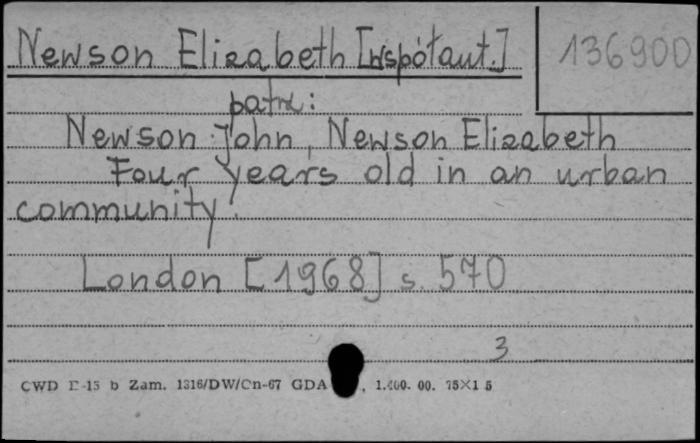 Newson Elizabeth [współaut.]
136900
patrz:
Newson John, Newson Elizabeth
Four years old in an urban
community.
London [1968] s. 570
3
CWD E-15 b Zam. 1316/DW/Cn-67 GDA